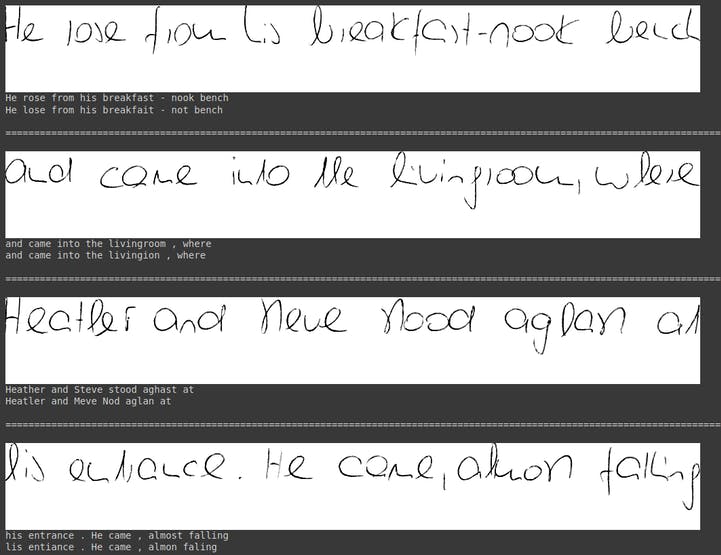 He rose from his breakfast-nook bench
He rose from his breakfast - nook bench
He lose from his breakfait - not bench
================================================================================
and came into the livingroom, where
and came into the livingroom , where
and came into the livingion , where
================================================================================
Heather and Steve stood aghast at
Heather and Steve stood aghast at
Heatler and Meve Nod aglan at
================================================================================
his entrance. He came, almost falling
his entrance . He came , almost falling
lis entiance . He came , almon faling